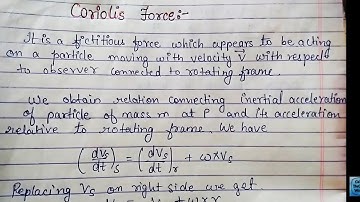 Coriolis Force:-
It is a fictitious force which appears to be acting
on a particle moving with velocity V⃗ with respect
to observer connected to rotating frame.
We obtain relation connecting inertial acceleration
of particle of mass m at P and its acceleration
relative to rotating frame. We have
(dVs/dt)s = (dVs/dt)r + ω×Vs
Replacing Vs on right side we get.